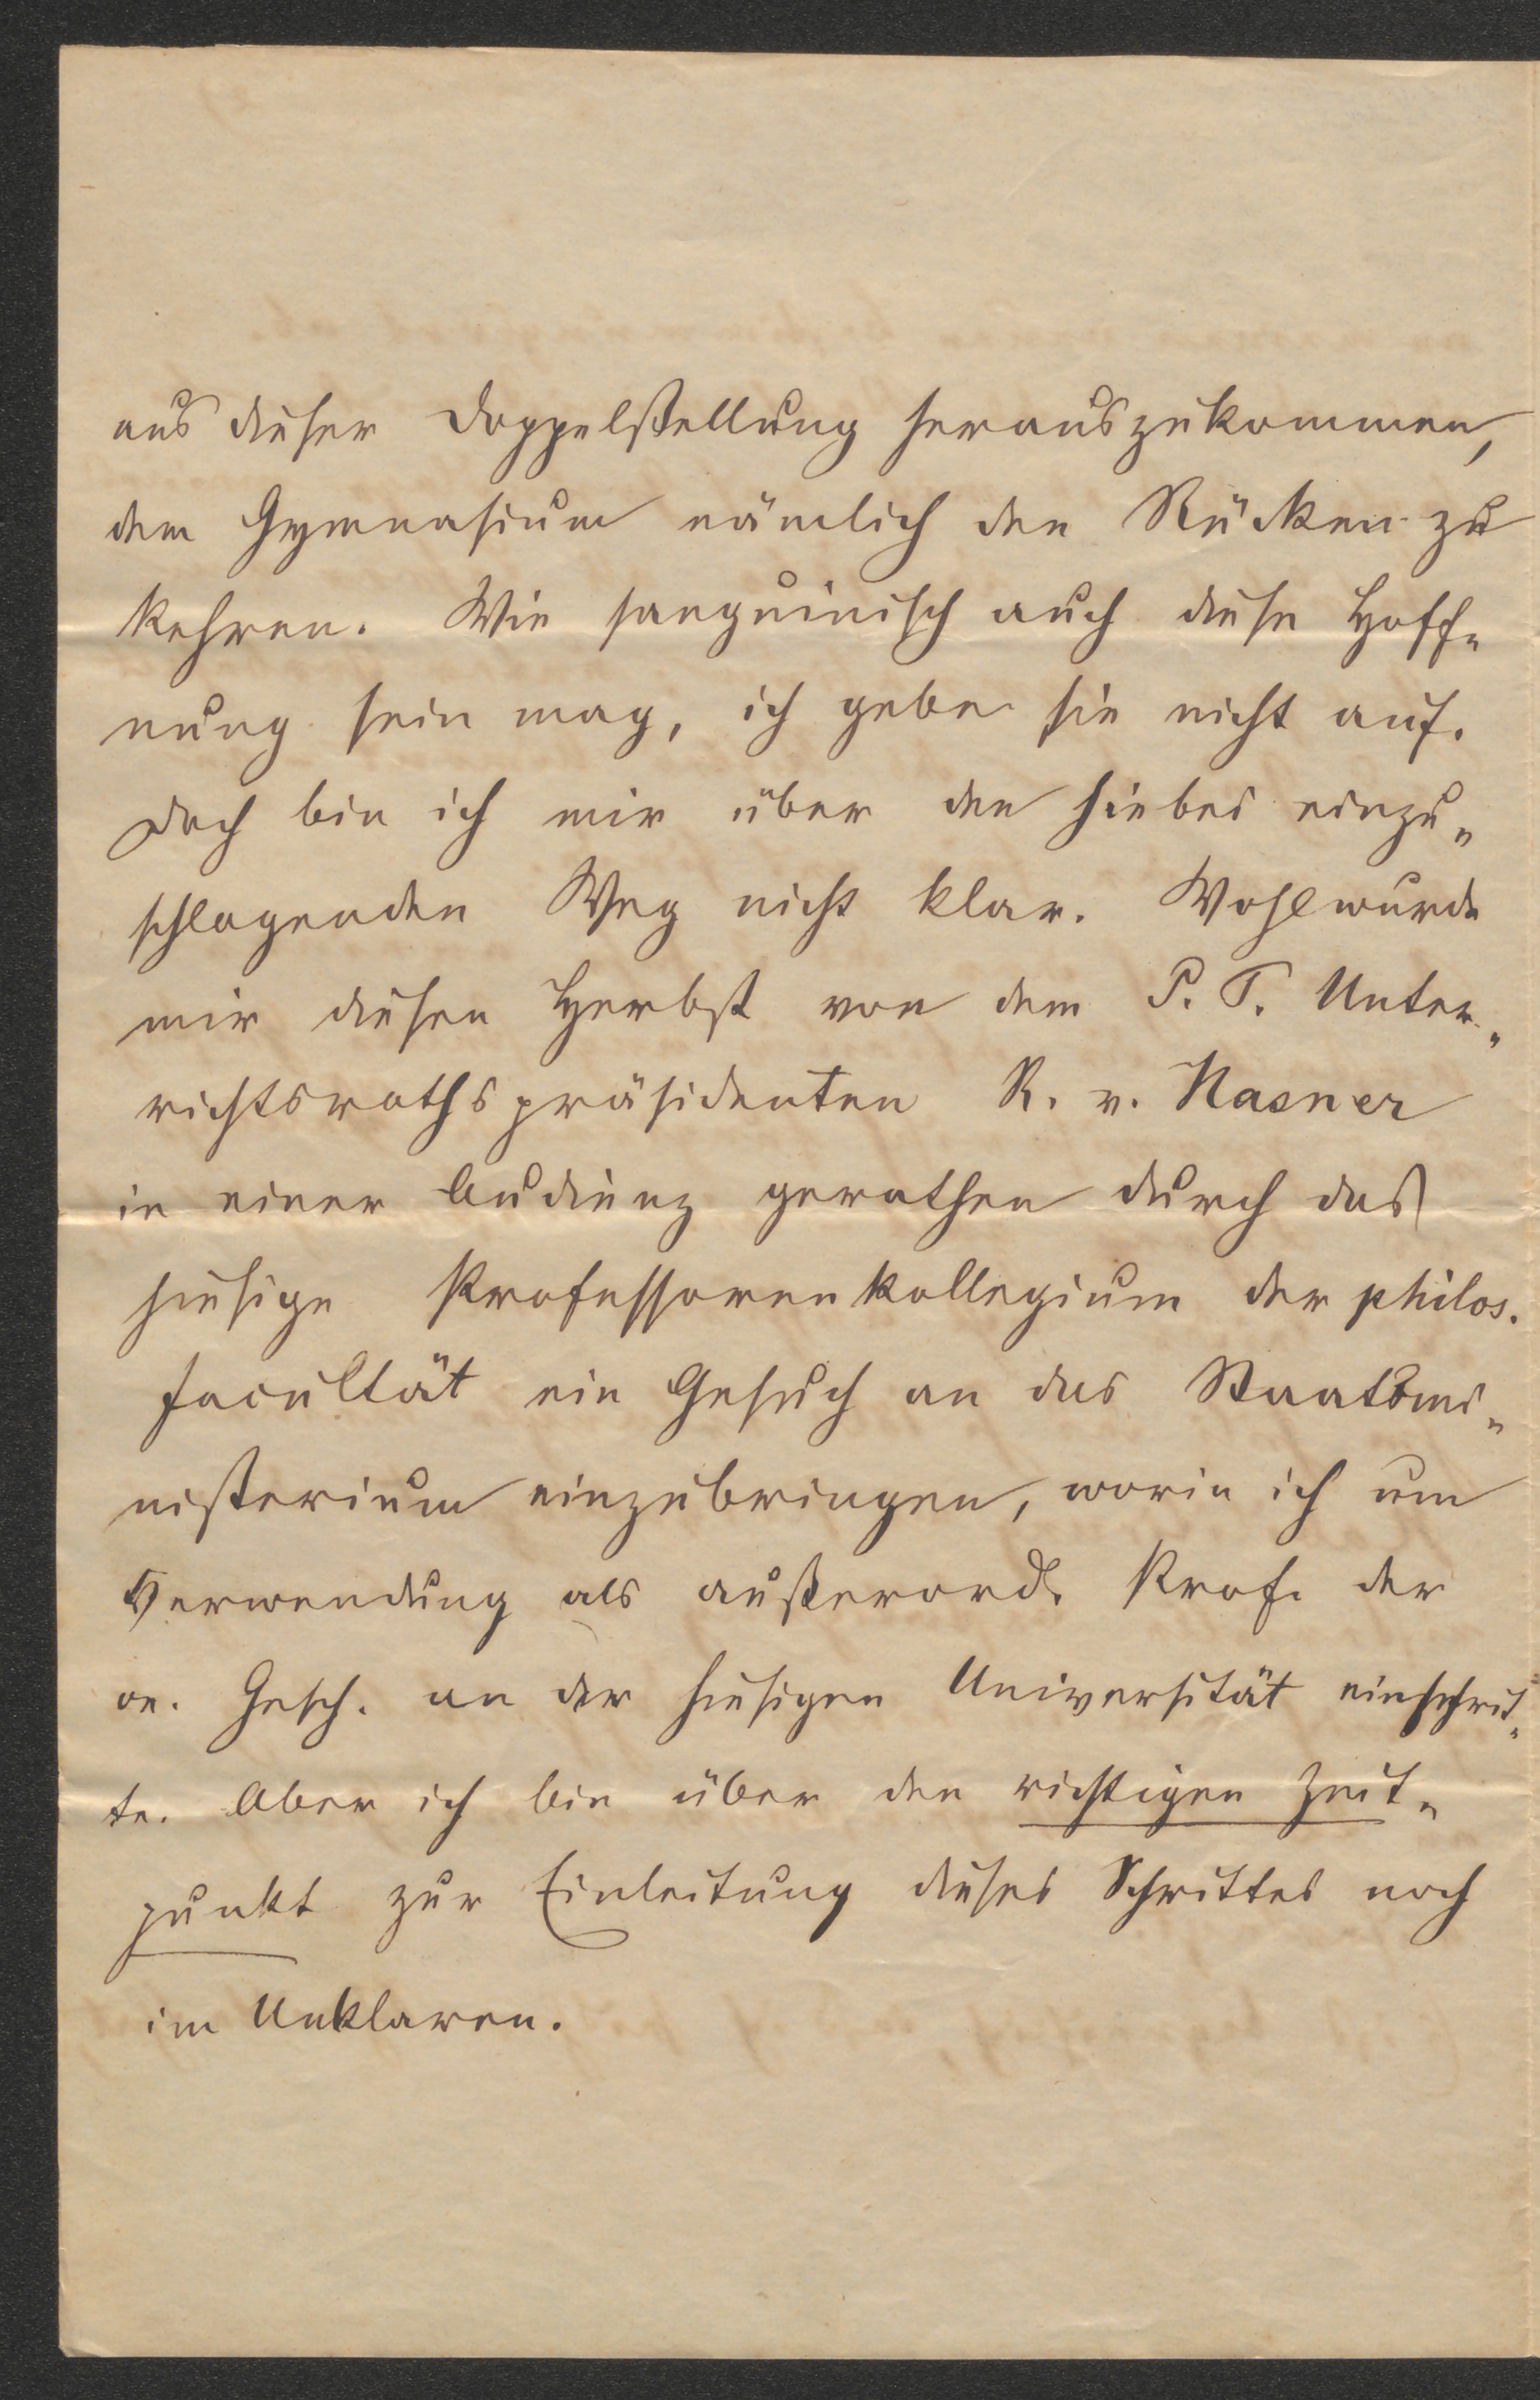 aus dieser Doppelstellung herauszukommen,
dem Gymnasium nämlich den Rücken zu
kehren. Wie sanguinisch auch diese Hoff-
nung sein mag, ich gebe sie nicht auf.
Doch bin ich mir über den hiebei einzu-
schlagenden Weg nicht klar. Wohl wurde
mir diesen Herbst von dem P. T. Unter-
richtsrathspräsidenten R. v. Hasner
in einer Audienz gerathen durch das
hiesige Professorenkollegium der philos.
Facultät ein Gesuch an das Staatsmi-
nisterium einzubringen, worin ich um
Verwendung als außerord. Prof. der
oe. Gesch. an der hiesigen Universität einschrit-
te. Aber ich bin über den richtigen Zeit-
punkt zur Einleitung dieses Schrittes noch
im Unklaren.